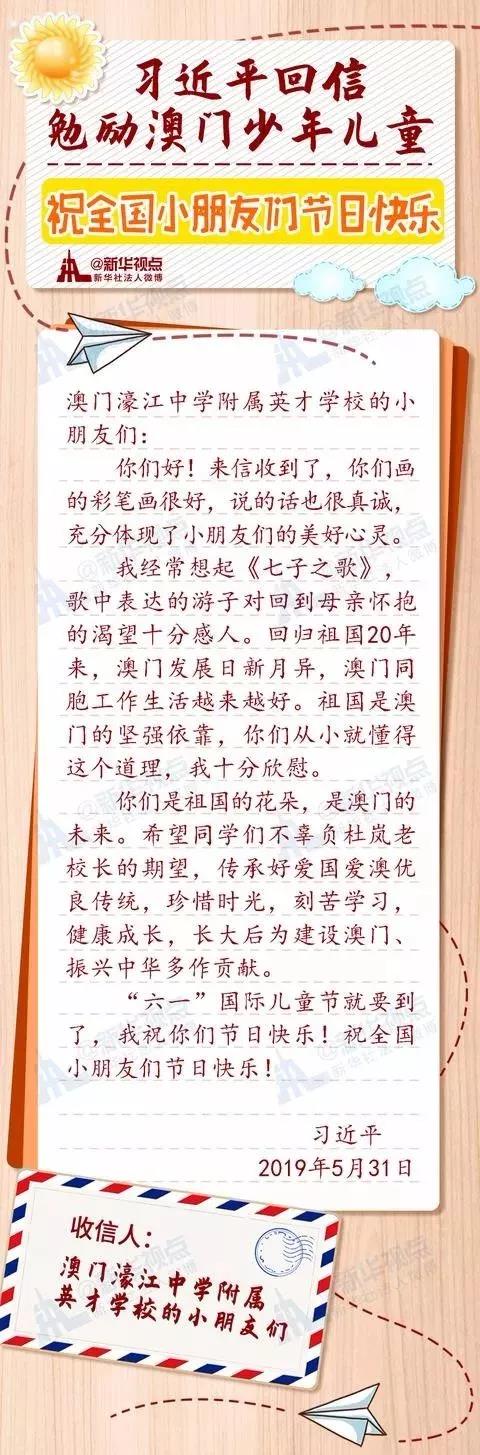 习近平回信
勉励澳门少年儿童
祝全国小朋友们节日快乐
@新华视点
新华社法人微博
澳门濠江中学附属英才学校的小
朋友们：
你们好！来信收到了，你们画
的彩笔画很好，说的话也很真诚，
充分体现了小朋友们的美好心灵。
我经常想起《七子之歌》，
歌中表达的游子对回到母亲怀抱
的渴望十分感人。回归祖国20年
来，澳门发展日新月异，澳门同
胞工作生活越来越好。祖国是澳
门的坚强依靠，你们从小就懂得
这个道理，我十分欣慰。
你们是祖国的花朵，是澳门的
未来。希望同学们不辜负杜岚老
校长的期望，传承好爱国爱澳优
良传统，珍惜时光，刻苦学习，
健康成长，长大后为建设澳门、
振兴中华多作贡献。
“六一”国际儿童节就要到
了，我祝你们节日快乐！祝全国
小朋友们节日快乐！
习近平
2019年5月31日
收信人：
澳门濠江中学附属
英才学校的小朋友们